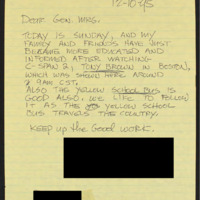 12-10-95
DEAR GEN. MRG.
TODAY IS SUNDAY, AND MY
FAMILY AND FRIENDS HAVE JUST
BECAME MORE EDUCATED AND
INFORMED AFTER WATCHING
C-SPAN 2; TONY BROWN IN BOSTON,
WHICH WAS SHOWN HERE AROUND
9 AM CST.
ALSO THE YELLOW SCHOOL BUS IS
GOOD ALSO, WE LIKE TO FOLLOW
IT AS THE YELLOW SCHOOL
BUS TRAVELS THE COUNTRY.
KEEP UP THE GOOD WORK.